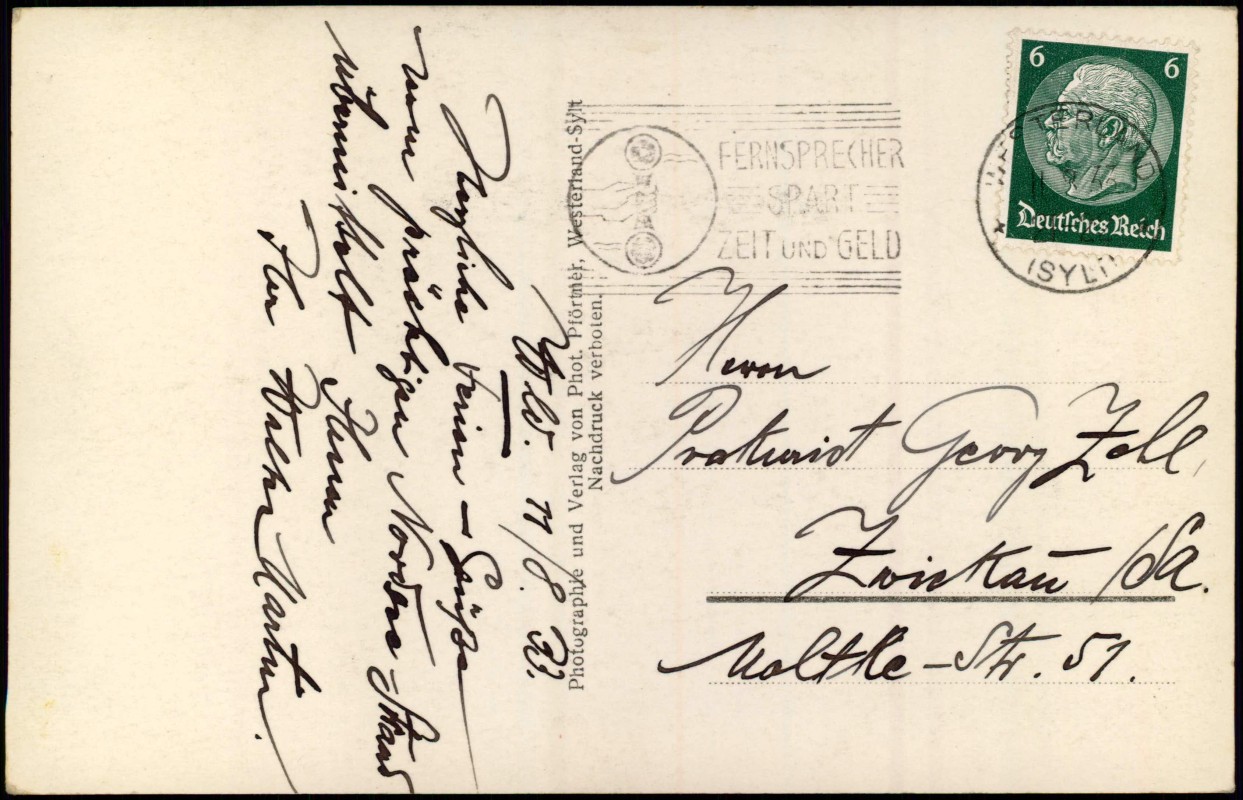 Wld. 11/8. 33.
Herzliche Ferien-Grüße
vom prächtigen Nordsee-Strand
übermittelt Ihnen
Ihr Walter Martin.
Photographie und Verlag von Phot. Pförtner, Westerland-Sylt
Nachdruck verboten.
FERNSPRECHER
SPART
ZEIT UND GELD
6 6
Deutsches Reich
WESTERLAND
(SYLT)
Herrn
Prokurist Georg Zehl,
Zwickau /Sa.
Moltke-Str. 51.